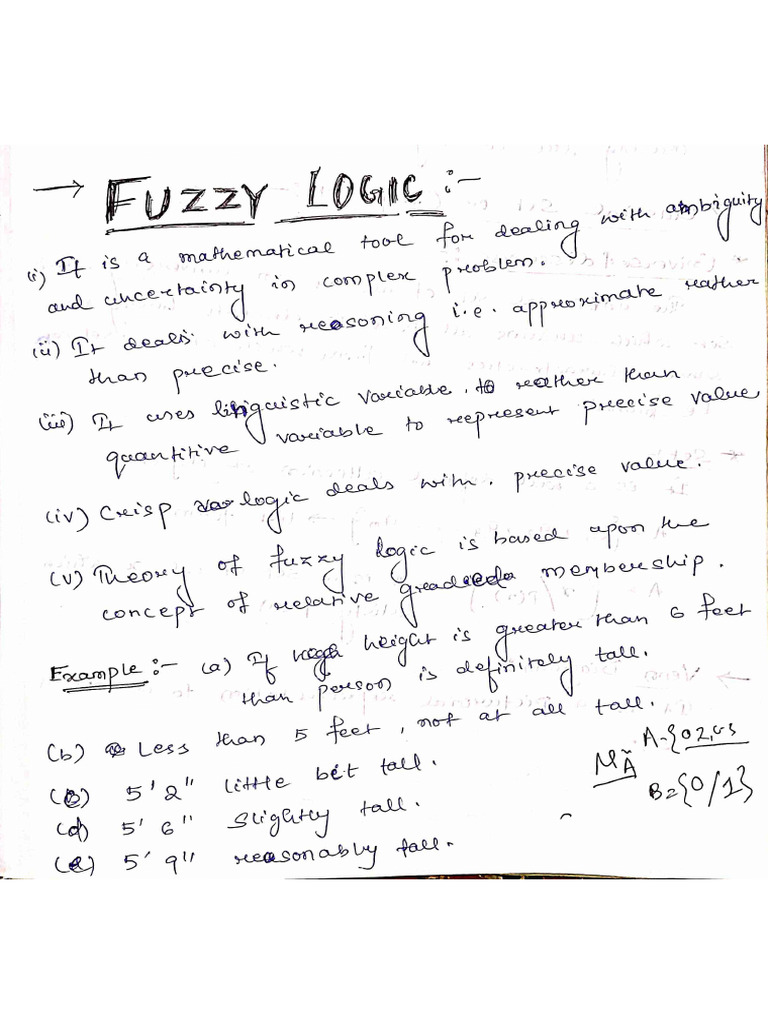 → FUZZY LOGIC :-
(i) It is a mathematical tool for dealing with ambiguity
and uncertainty in complex problem.
(ii) It deals with reasoning i.e. approximate rather
than precise.
(iii) It uses linguistic variable, rather than
quantitive variable to represent precise value
(iv) Crisp logic deals with. precise value.
(v) Theory of fuzzy logic is based upon the
concept of relative membership.
Example :- (a) If height is greater than 6 feet
than person is definitely tall.
(b) Less than 5 feet, not at all tall.
(c) 5'2" little bit tall.
(d) 5'6" slightly tall.
(e) 5'9" reasonably tall.
B={0/1}